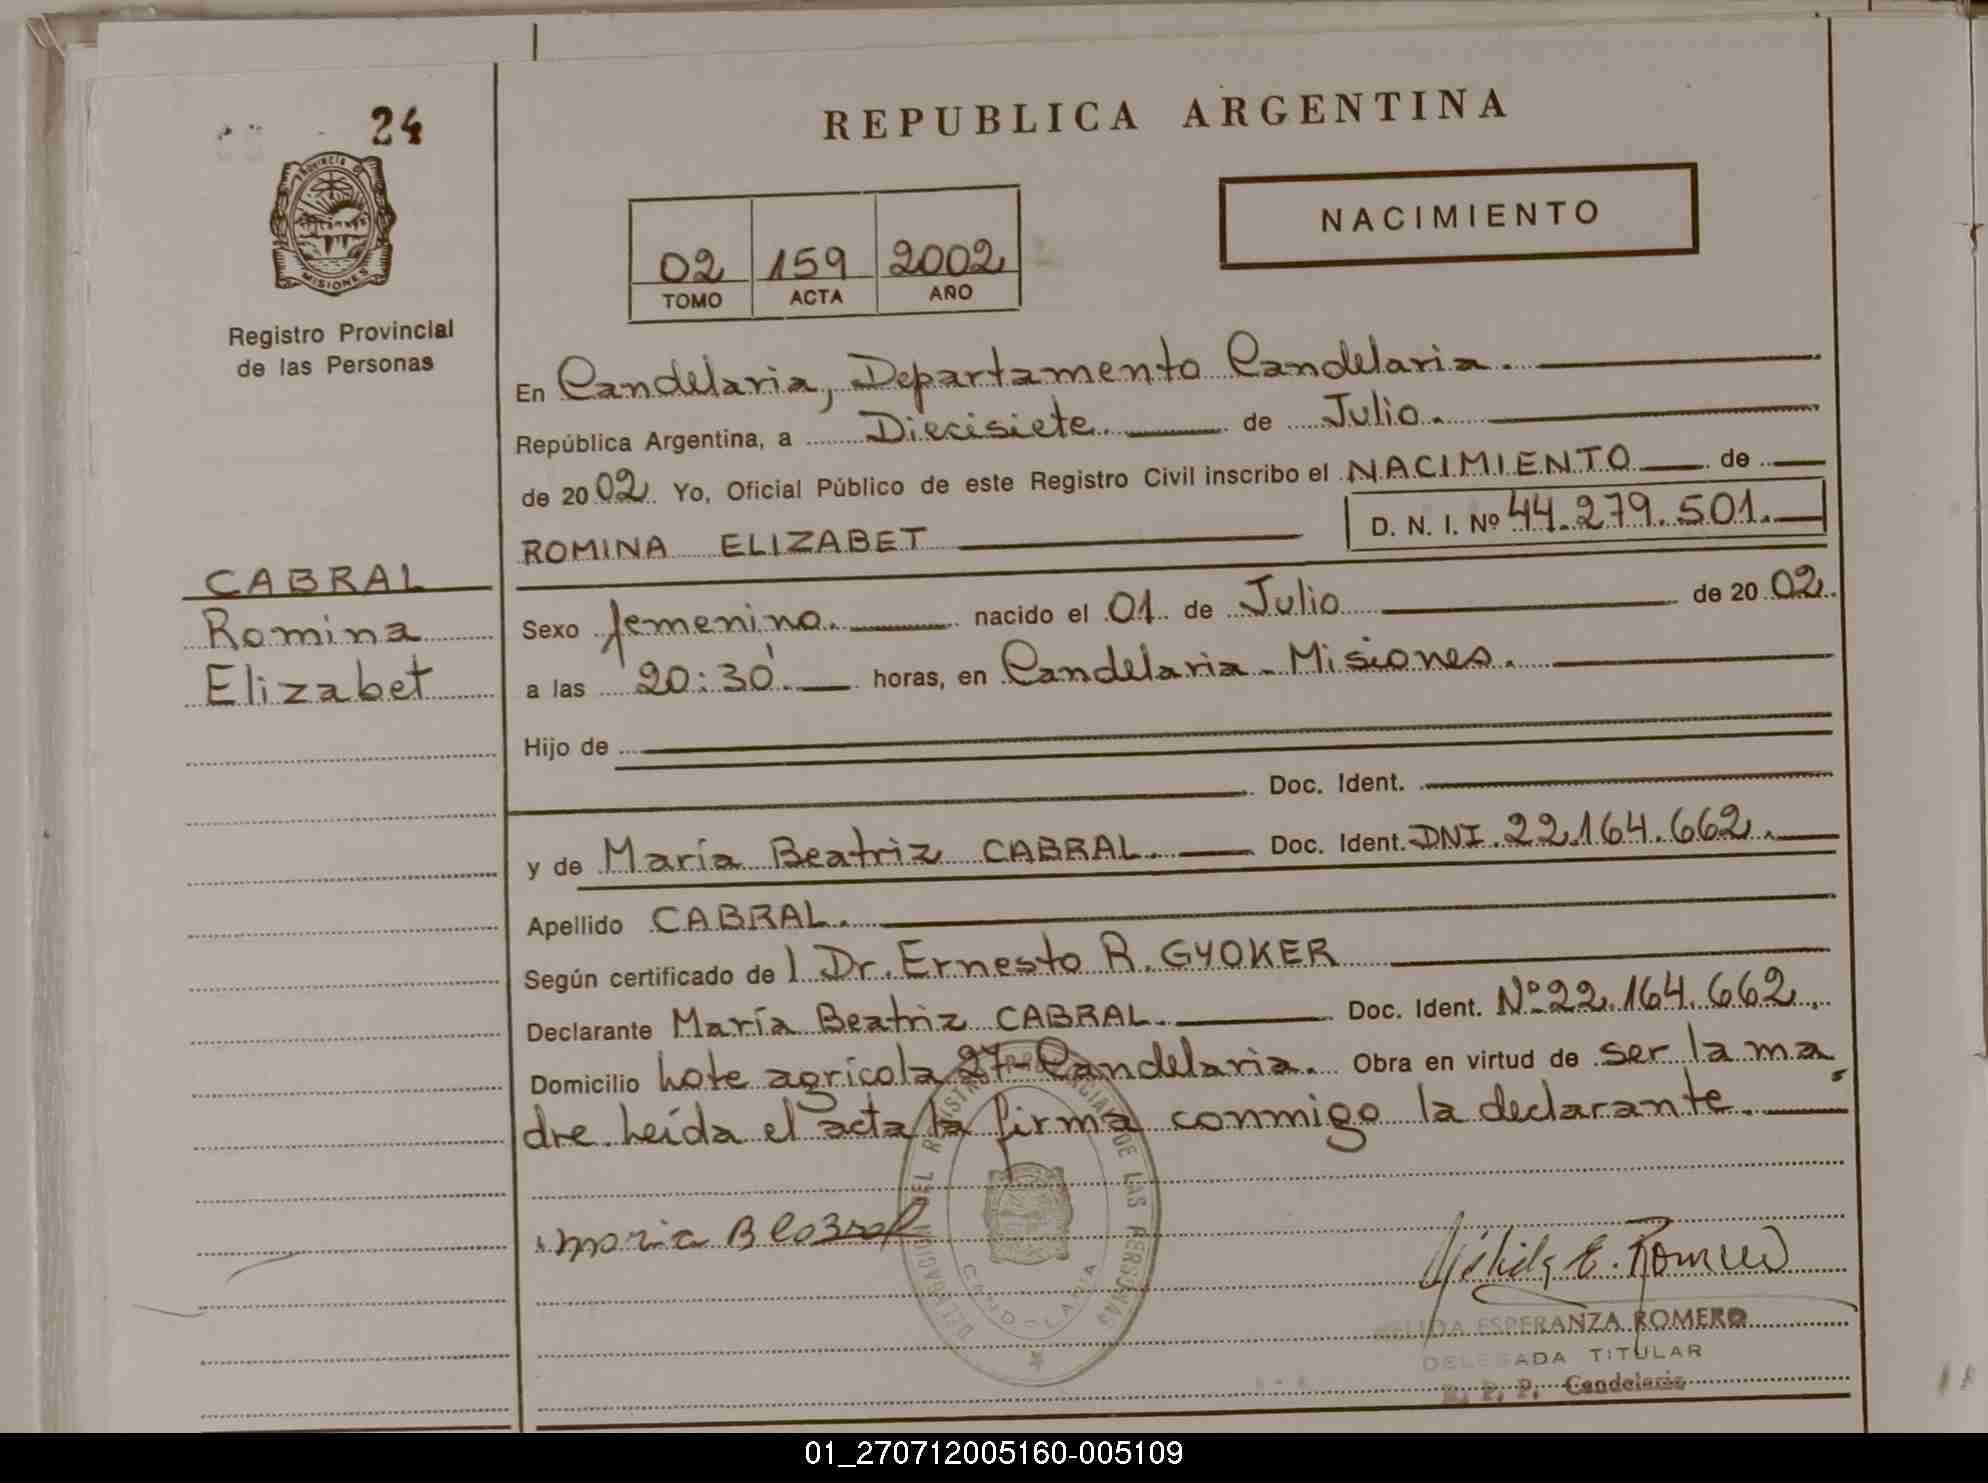 24
PROVINCIA DE
MISIONES
Registro Provincial
de las Personas
CABRAL
Romina
Elizabet
REPUBLICA ARGENTINA
NACIMIENTO
02 159 2002
TOMO ACTA AÑO
En Candelaria, Departamento Candelaria.
República Argentina, a Diecisiete. de Julio.
de 20 02. Yo, Oficial Público de este Registro Civil inscribo el NACIMIENTO de
ROMINA ELIZABET D. N. I. Nº 44.279.501.
Sexo femenino. nacido el 01. de Julio de 20 02.
a las 20:30'. horas, en Candelaria - Misiones.
Hijo de
Doc. Ident.
y de María Beatriz CABRAL. Doc. Ident. DNI. 22.164.662.
Apellido CABRAL.
Según certificado de l Dr. Ernesto R. GYOKER
Declarante María Beatriz CABRAL. Doc. Ident. Nº 22.164.662.
Domicilio Lote agrícola 27 - Candelaria. Obra en virtud de ser la ma
dre. Leída el acta la firma conmigo la declarante.
DELEGACION DEL REGISTRO PROVINCIAL DE LAS PERSONAS
CANDELARIA
maria B Cabral
Nélida E. Romero
NELIDA ESPERANZA ROMERO
DELEGADA TITULAR
R. P. P. Candelaria
01_270712005160-005109